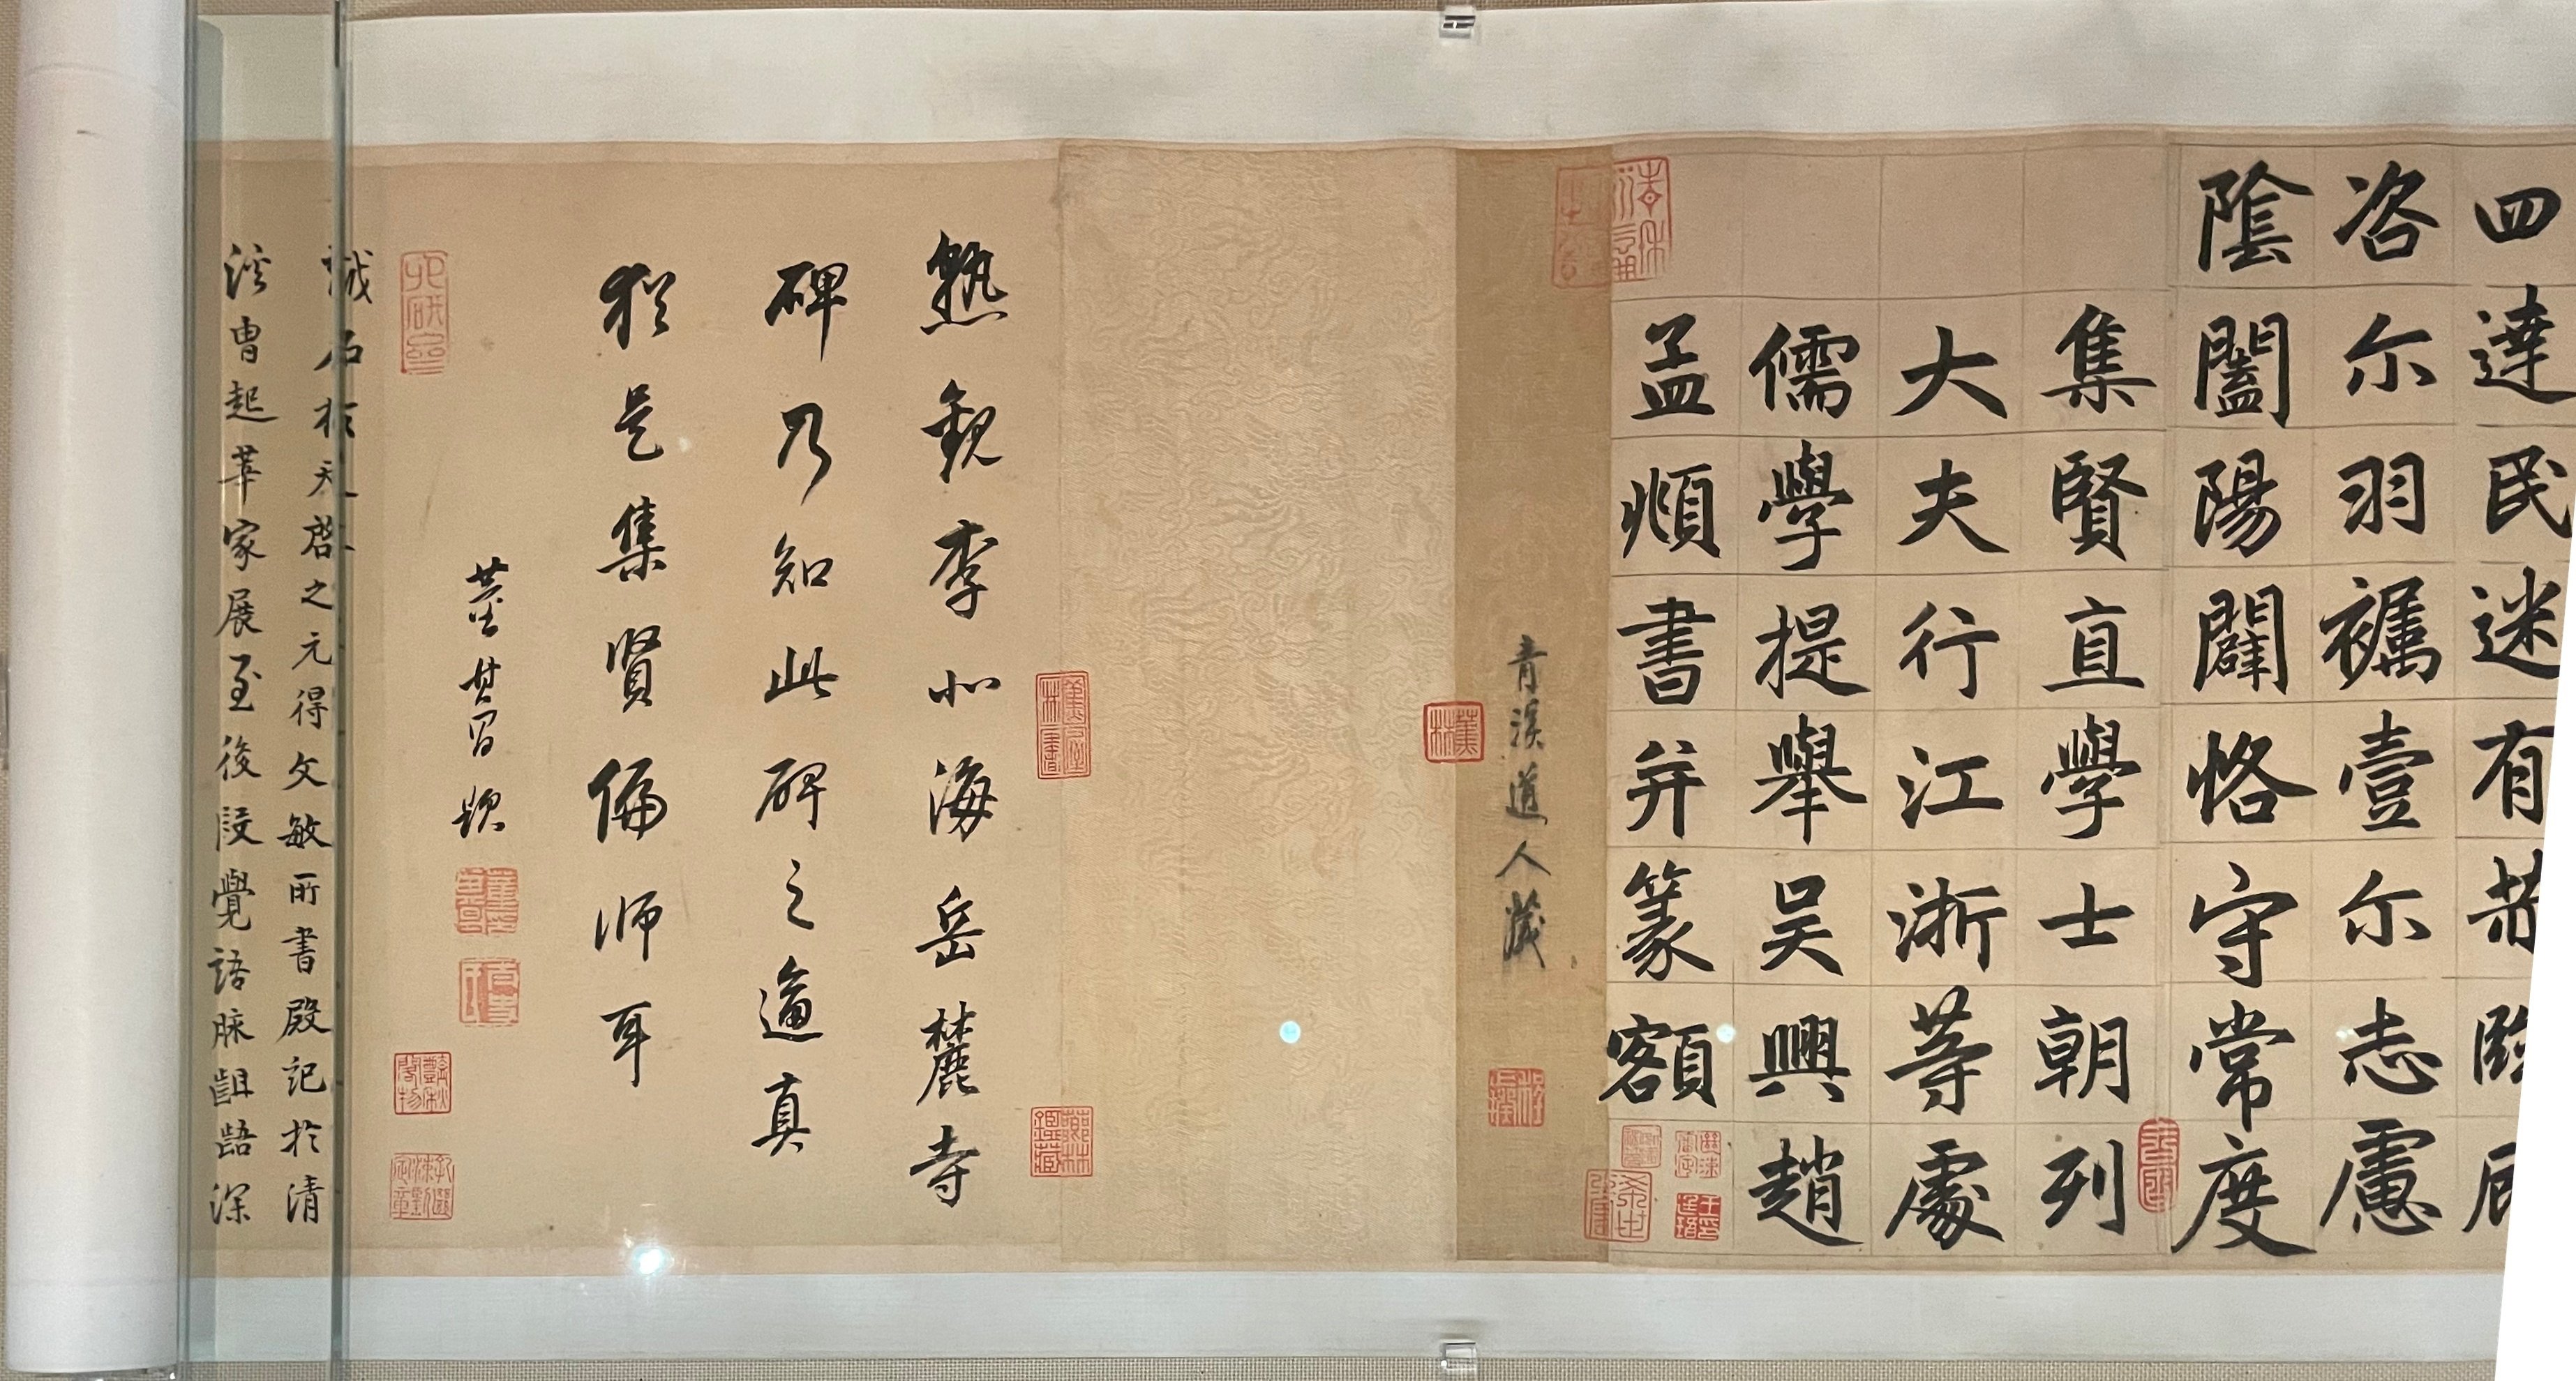 四達民迷有赫臨
咨尒羽襹壹尒志慮
陰闔陽闢恪守常度
集賢直學士朝列
大夫行江浙等處
儒學提舉吳興趙
孟頫書并篆額
青溪道人藏
熟觀李北海岳麓寺
碑乃知此碑之逼真
猶是集賢偏师耳
董其昌題
誠石於天啓之元得文敏所書殿記於清
溪曹起莘家展至後段覺語脉齟齬深
蕉林
蕉林